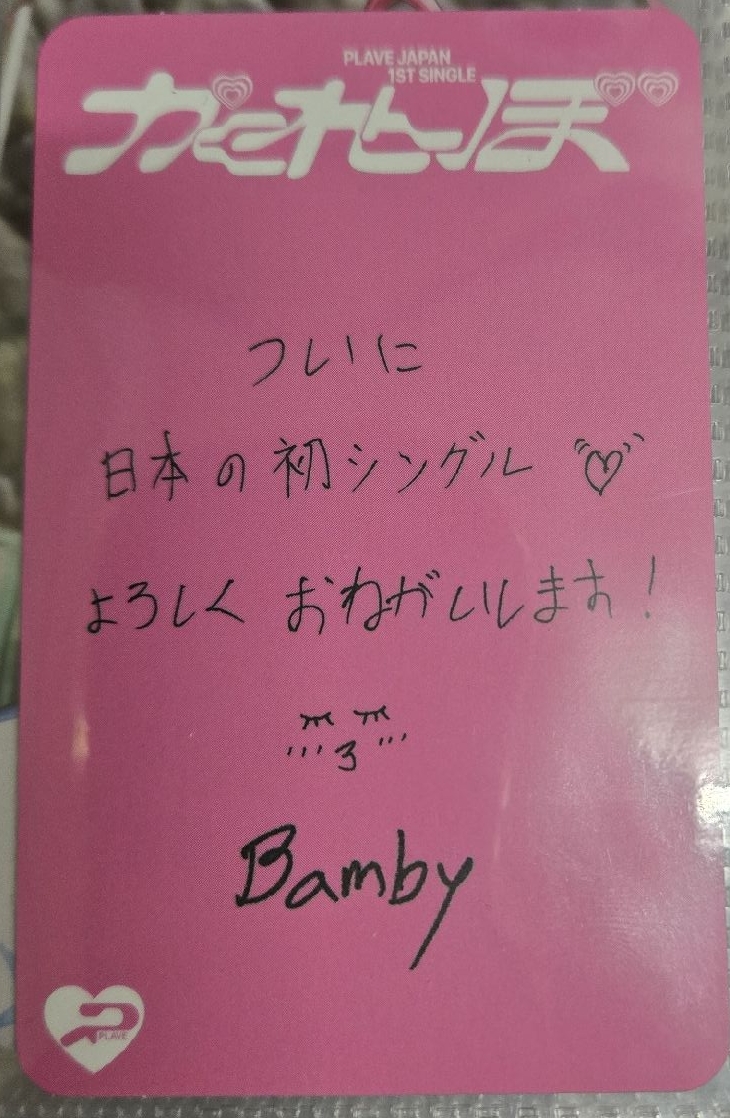 PLAVE JAPAN
1ST SINGLE
かくれんぼ
ついに
日本の初シングル
よろしくおねがいします!
Bamby
PLAVE